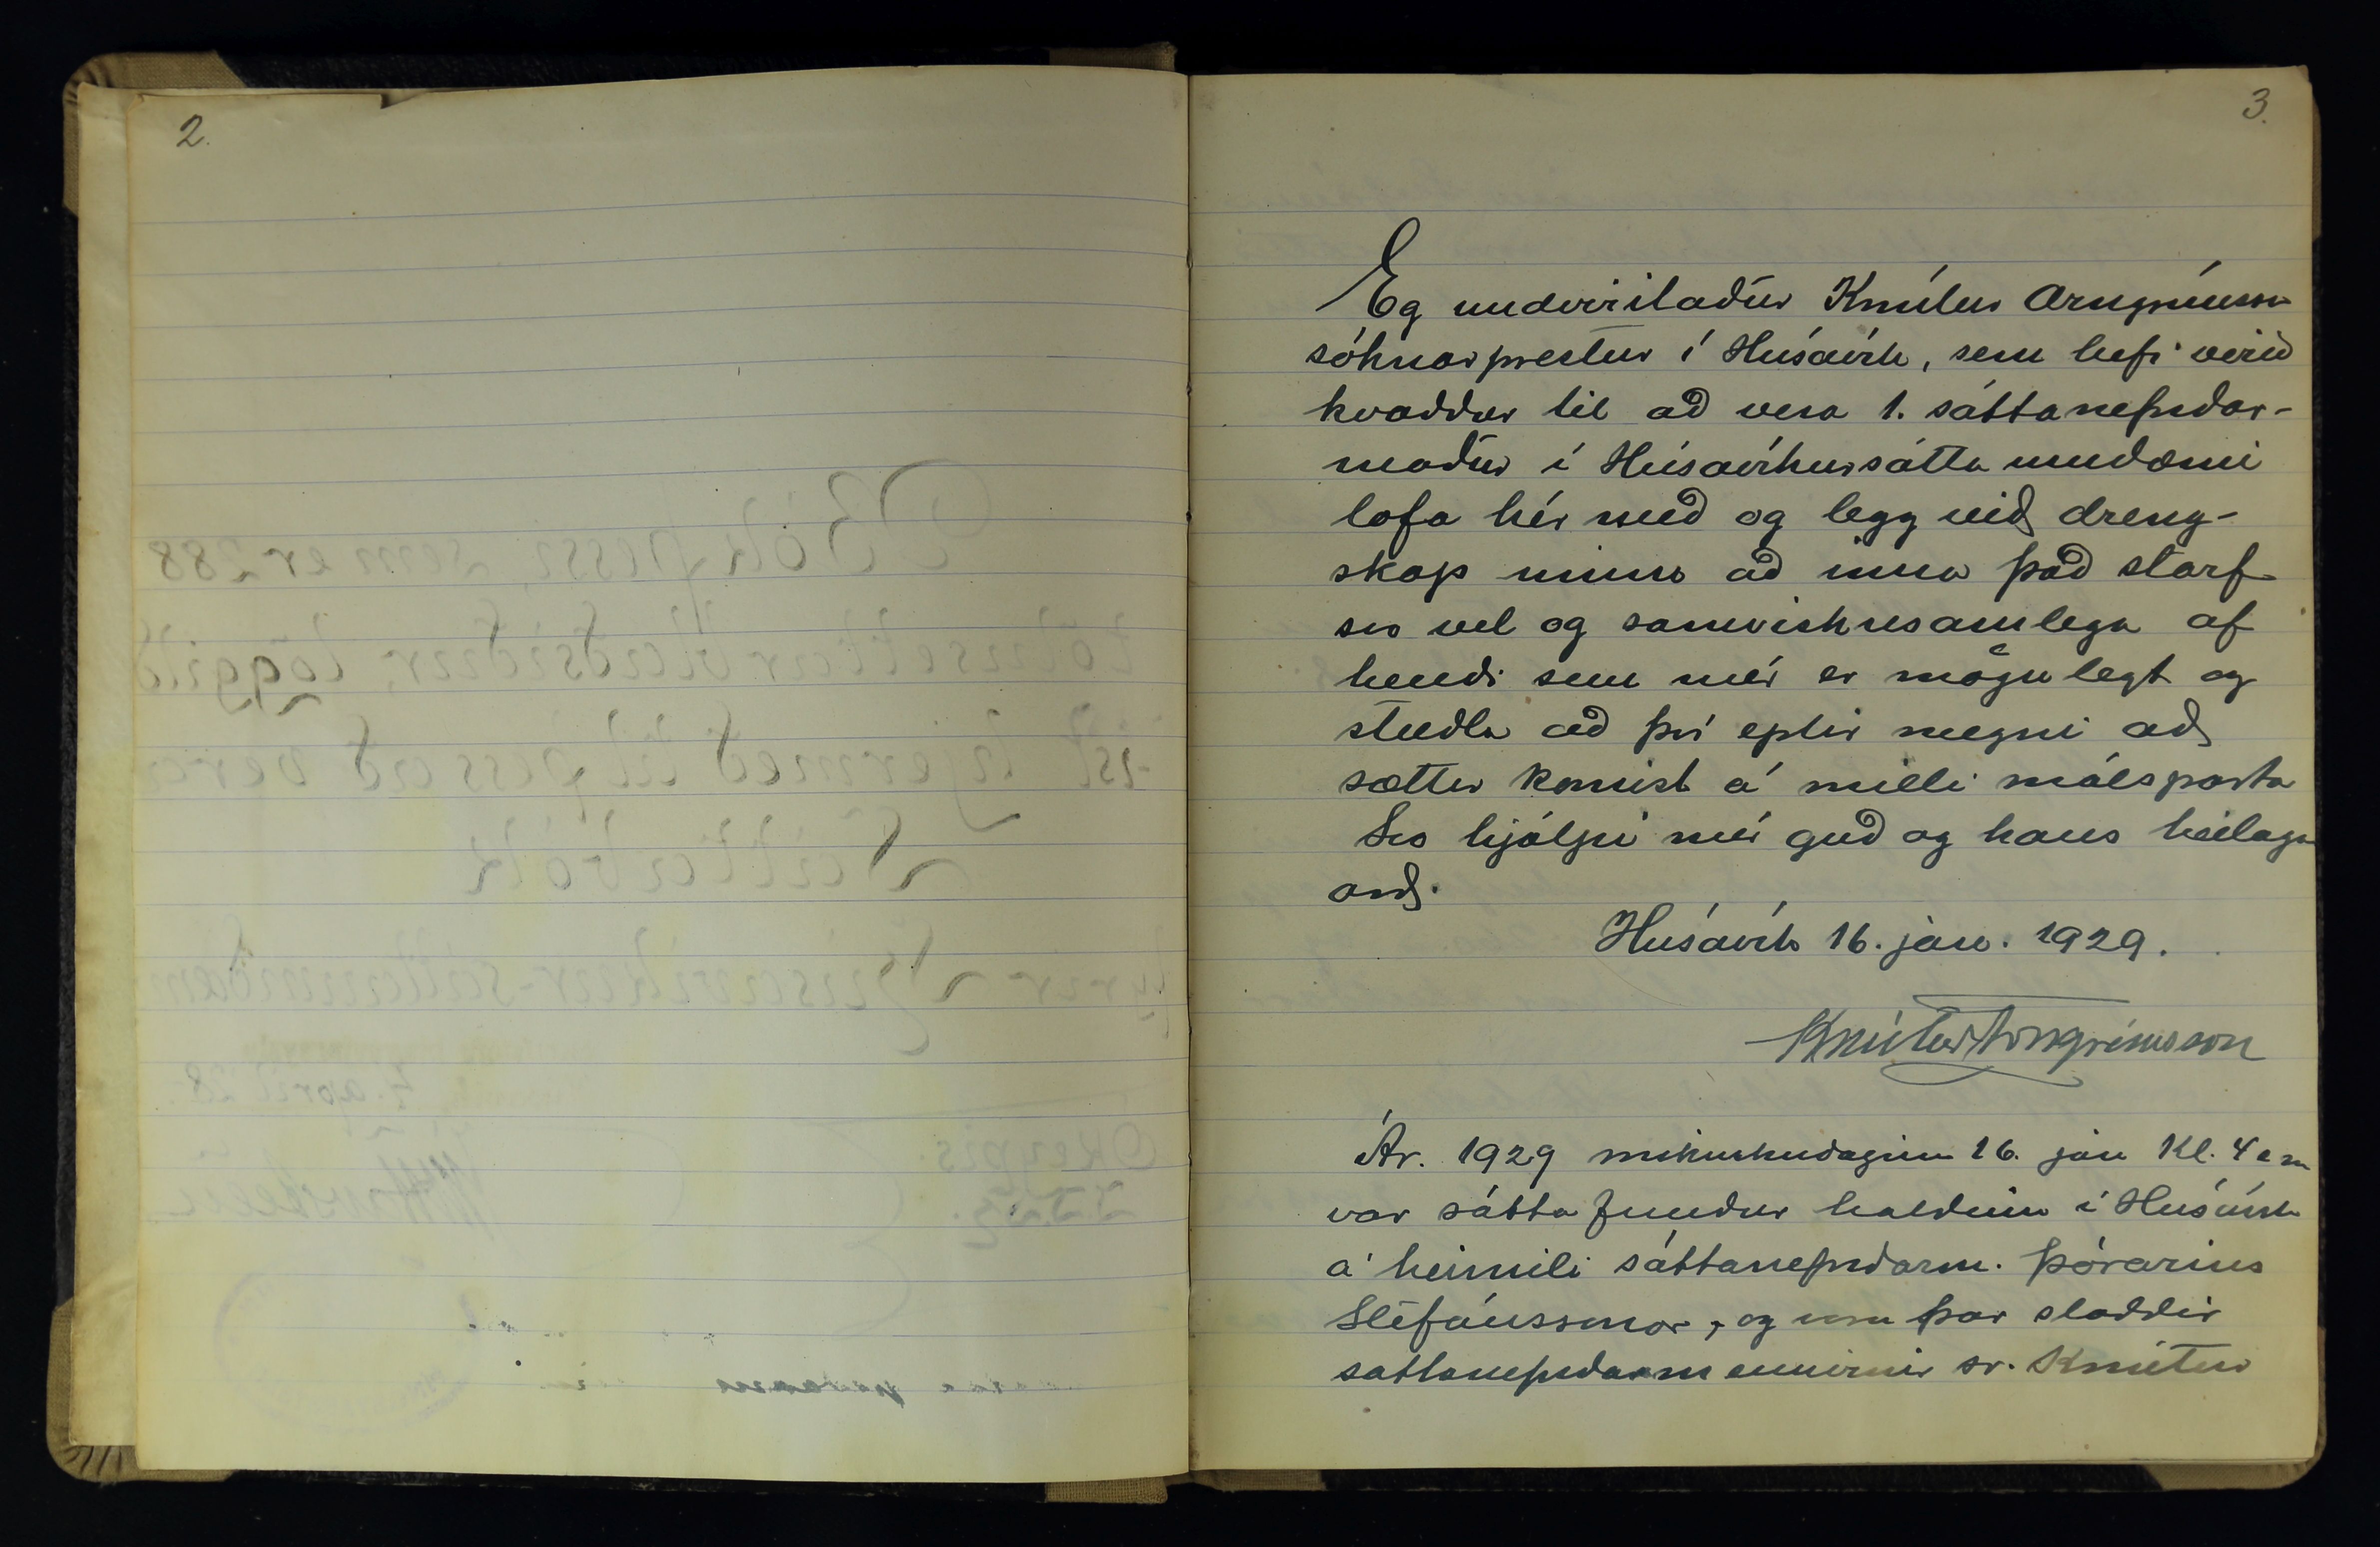 2.
3.
Eg undirritaður Knútur Arngrímsson
sóknarprestur í Húsavík, sem hefi verið
kvaddur til að vera 1. sáttanefndar-
maður í Húsavíkursáttaumdæmi
lofa hér með og legg við dreng-
skap minn að inna það starf
svo vel og samvizkusamlega af
hendi sem mér er mögulegt og
stuðla að því eptir megni að
sættir komist á milli málsparta
Svo hjálpi mér guð og hans heilaga
orð.
Húsavík 16. jan. 1929.
Knútur Arngrímsson
Ár. 1929 mikvikudaginn 16. jan Kl. 4 e m
var sátta fundur haldinn í Húsavík
á heimili sáttanefndarm. Þórarins
Stefánssonar, og voru þar staddir
sattanefndarmennirnir sr. Knútur